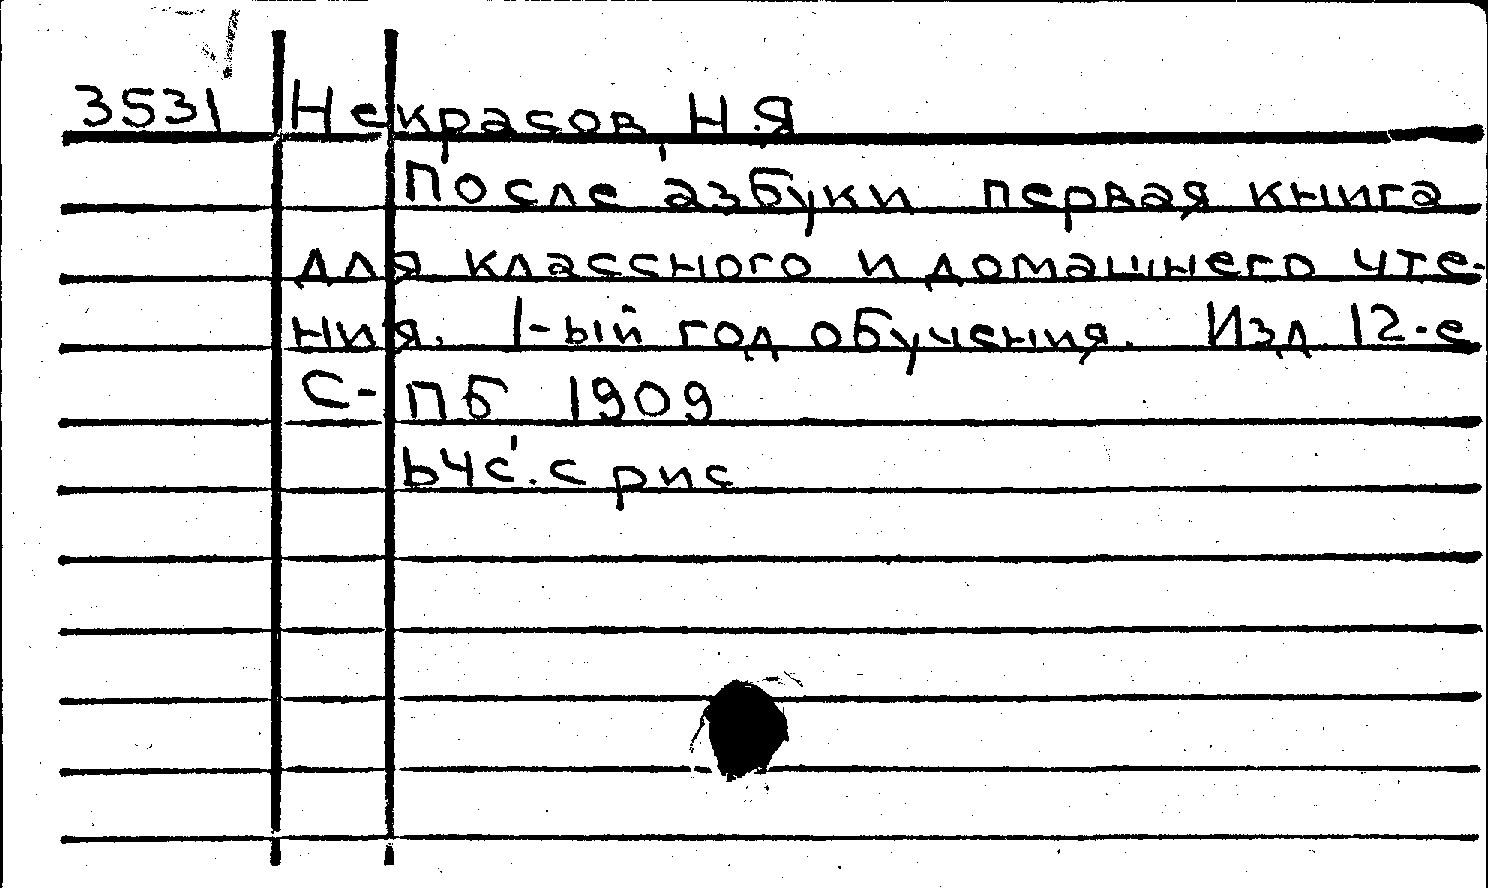 3531 Некрасов, Н.Я
После азбуки первая книга
для классного и домашнего чте-
ния. 1-ый год обучения. Изд 12-е
С-ПБ 1909
64с. с рис